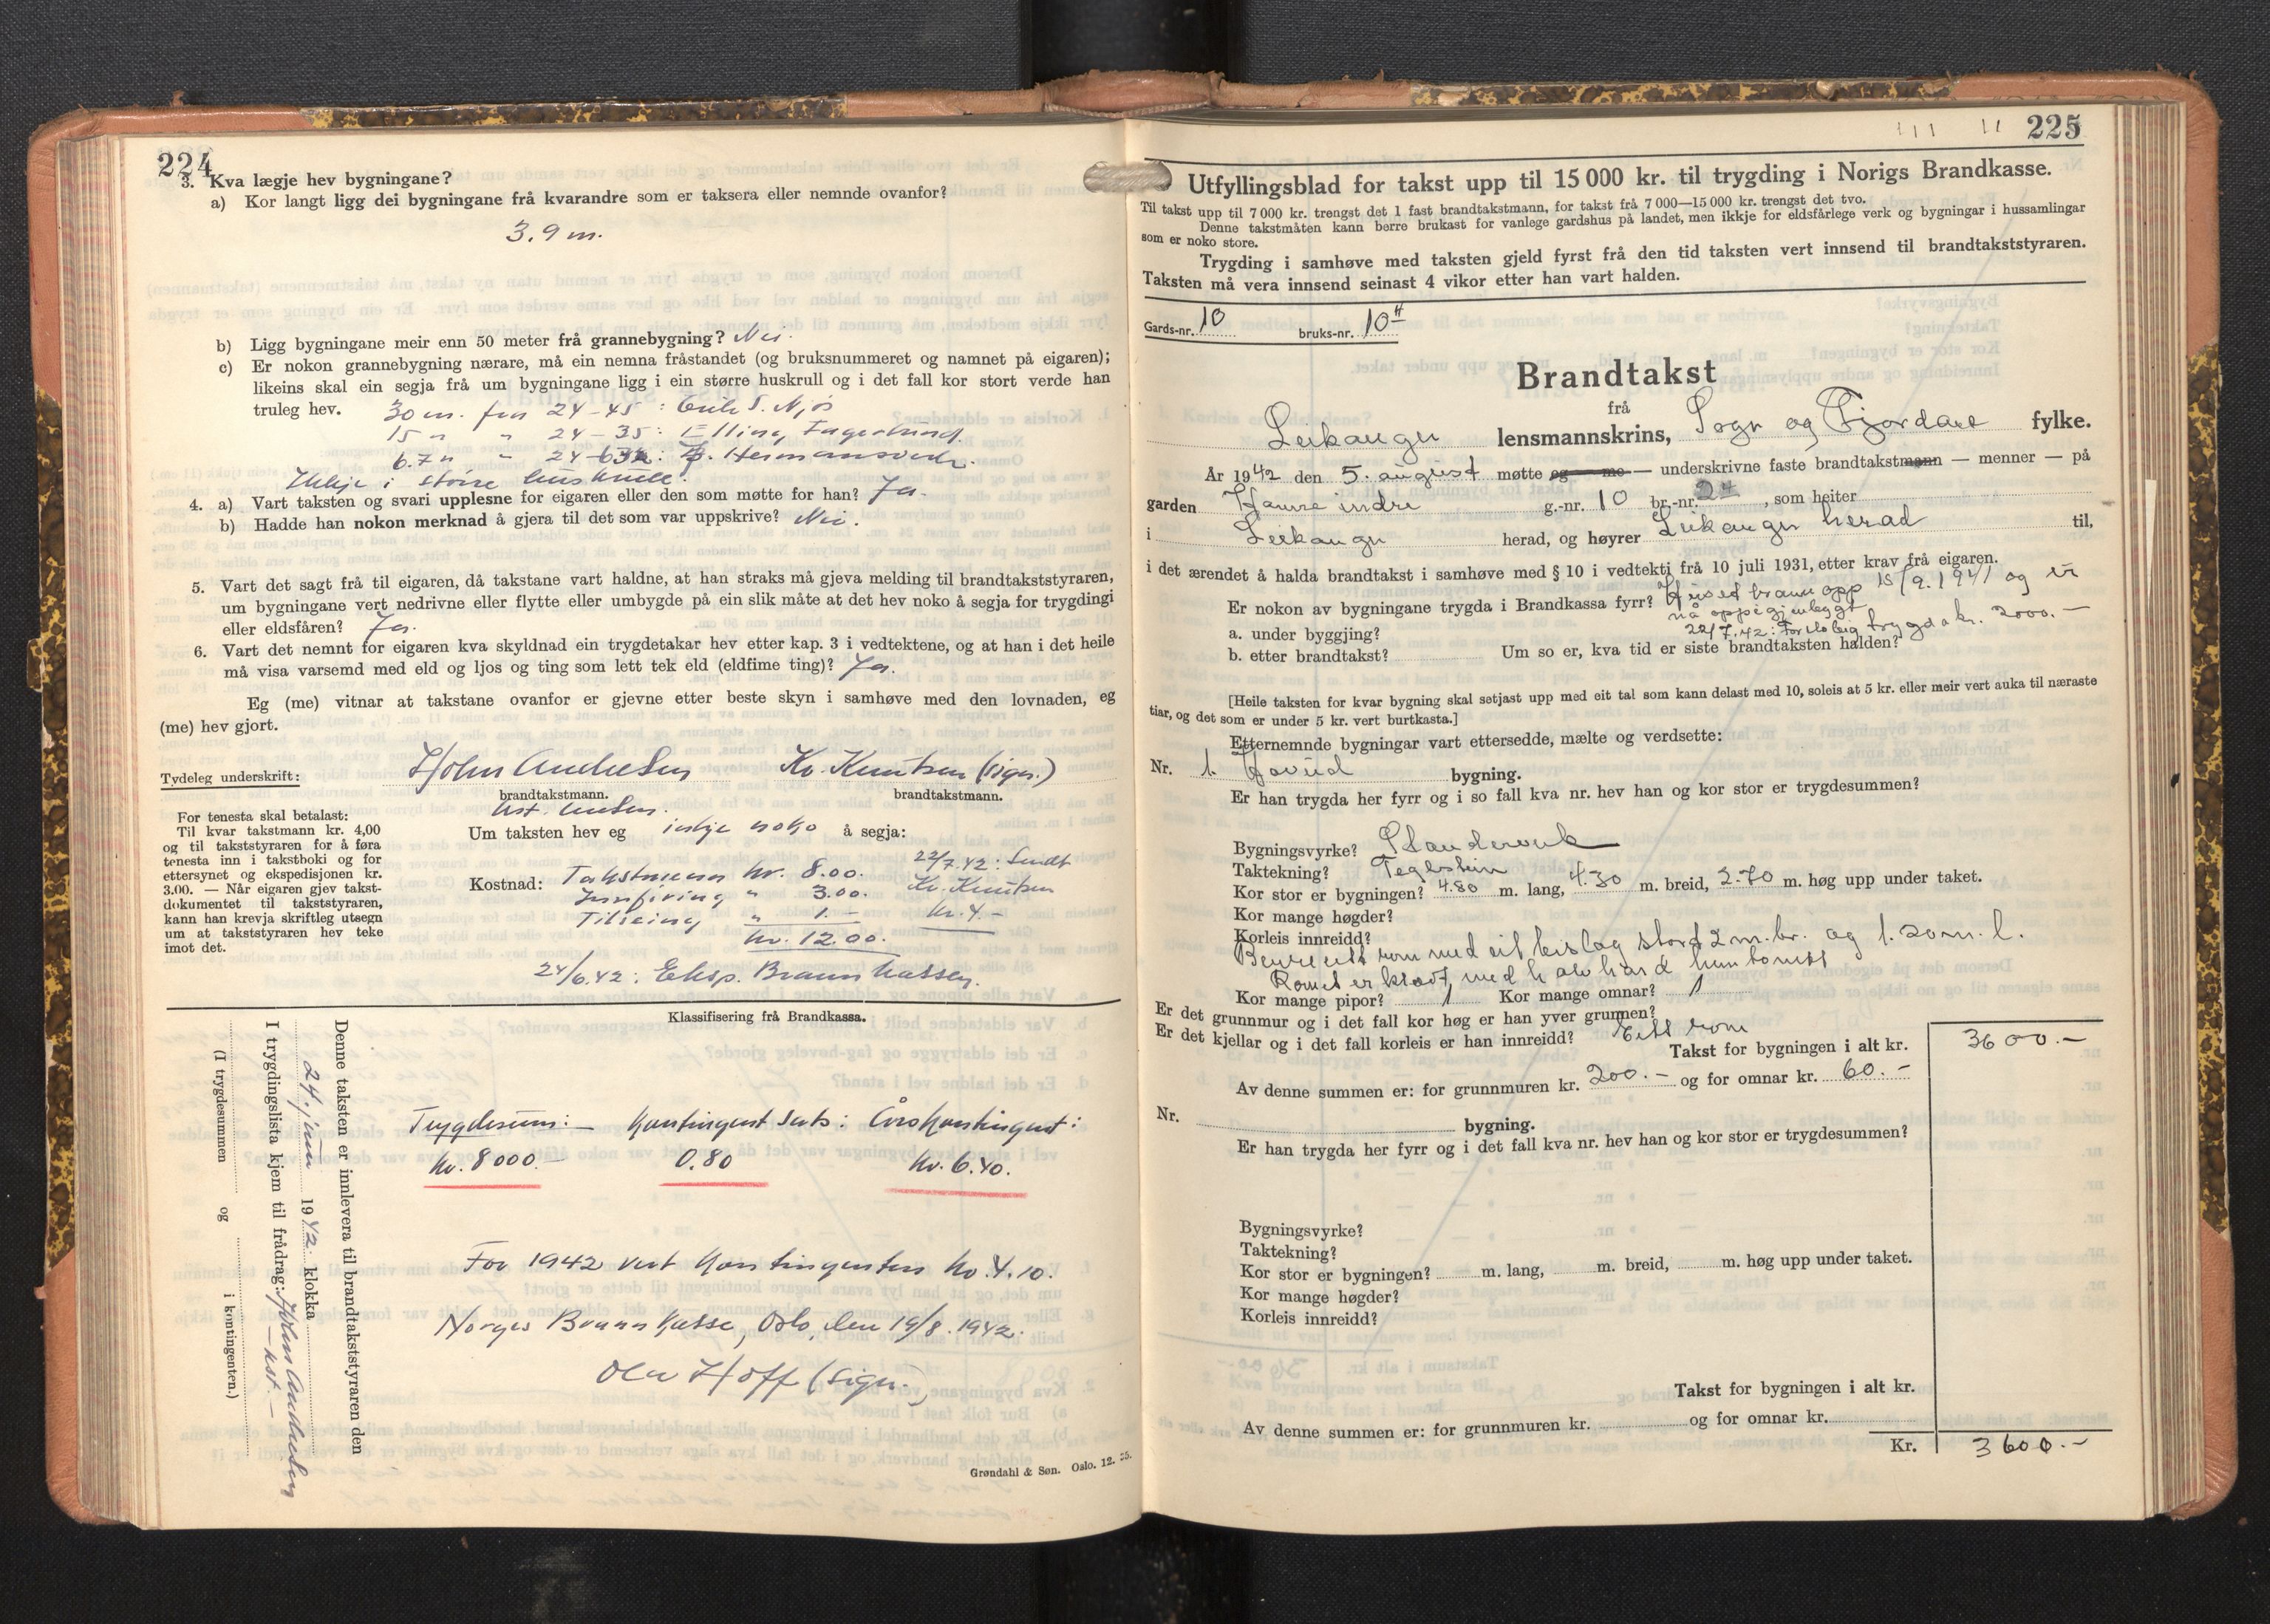 224
3. Kva lægje hev bygningane?
a) Kor langt ligg dei bygningane frå kvarandre som er taksera eller nemnde ovanfor?
3.9 m.
b) Ligg bygningane meir enn 50 meter frå grannebygning? Nei.
c) Er nokon grannebygning nærare, må ein nemna fråstandet (og bruksnummeret og namnet på eigaren);
likeins skal ein segja frå um bygningane ligg i ein større huskrull og i det fall kor stort verde han
truleg hev. 30 m. frå 24-45: Eirik S. Njøs
15 " " 24-35: Elling Fagerlund.
6.7 " " 24- Hermansverk.
Ikkje i større huskrull.
4. a) Vart taksten og svari upplesne for eigaren eller den som møtte for han? Ja.
b) Hadde han nokon merknad å gjera til det som var uppskrive? Nei.
5. Vart det sagt frå til eigaren, då takstane vart haldne, at han straks må gjeva melding til brandtakststyraren,
um bygningane vert nedrivne eller flytte eller umbygde på ein slik måte at det hev noko å segja for trygdingi
eller eldsfåren? Ja.
6. Vart det nemnt for eigaren kva skyldnad ein trygdetakar hev etter kap. 3 i vedtektene, og at han i det heile
må visa varsemd med eld og ljos og ting som lett tek eld (eldfime ting)? Ja.
Eg (me) vitnar at takstane ovanfor er gjevne etter beste skyn i samhøve med den lovnaden, eg
(me) hev gjort.
Tydeleg underskrift: John Andresen Kr. Knutsen (sign.)
brandtakstmann. brandtakstmann.
For tenesta skal betalast:
Til kvar takstmann kr. 4,00
og til takststyraren for å føra
tenesta inn i takstboki og for
ettersynet og ekspedisjonen kr.
3.00. — Når eigaren gjev takst-
dokumentet til takststyraren,
kann han krevja skriftleg utsegn
um at takststyraren hev teke
imot det.
Um taksten hev eg ikkje noko å segja:
Kostnad: Takstmenn kr. 8.00.
Innføring " 3.00.
" 1.-
Kr. 12.00.
22/7.42: Sendt
Kr. Knutsen
Kr. 4.-
24/6.42: Eksp. Brannkassen.
Klassifisering frå Brandkassa.
Trygdesum: Kontingent sats: Årskontingent:
Kr. 8000.- 0.80 Kr. 6.40.
For 1942 vert kontingenten kr. 4.10.
Norges Brannkasse, Oslo, den 19/8.1942.
Ola Hoff (sign.)
Denne taksten er innlevera til brandtakststyraren den
24. juni 1942. klokka
I trygdingslista kjem til frådrag: John Andresen
- kst -
(I trygdesummen og i kontingenten.)
Grøndahl & Søn. Oslo. 12. 35.
225
Utfyllingsblad for takst upp til 15 000 kr. til trygding i Norigs Brandkasse.
Til takst upp til 7 000 kr. trengst det 1 fast brandtakstmann, for takst frå 7 000—15 000 kr. trengst det tvo.
Denne takstmåten kann berre brukast for vanlege gardshus på landet, men ikkje for eldsfårlege verk og bygningar i hussamlingar
som er noko store.
Trygding i samhøve med taksten gjeld fyrst frå den tid taksten vert innsend til brandtakststyraren.
Taksten må vera innsend seinast 4 vikor etter han vart halden.
Gards-nr. 10 bruks-nr.
Brandtakst
frå
Leikanger lensmannskrins, Sogn og Fjordane fylke.
År 1942 den 5. august møtte og me — underskrivne faste brandtakstmann — menner — på
garden Hamre indre g.-nr. 10 br.-nr. 24, som heiter
i Leikanger herad, og høyrer Leikanger herad til,
i det ærendet å halda brandtakst i samhøve med § 10 i vedtekti frå 10 juli 1931, etter krav frå eigaren.
Er nokon av bygningane trygda i Brandkassa fyrr? Huset brann opp 15/9.1941 og er
nå oppattbygt
a. under byggjing? 22/7.42: Forløbig trygda kr. 2000.-
b. etter brandtakst? Um so er, kva tid er siste brandtaksten halden?
[Heile taksten for kvar bygning skal setjast upp med eit tal som kann delast med 10, soleis at 5 kr. eller meir vert auka til næraste
tiar, og det som er under 5 kr. vert burtkasta.]
Etternemnde bygningar vart ettersedde, mælte og verdsette:
Nr. 1. Hovud bygning.
Er han trygda her fyrr og i so fall kva nr. hev han og kor stor er trygdesummen?
Bygningsvyrke? Standerverk
Taktekning? Teglstein
Kor stor er bygningen? 4.80 m. lang, 4.30 m. breid, 2.70 m. høg upp under taket.
Kor mange høgder?
Korleis innreidd?
Berre eitt rom med eit bislag stort 2 m. br. og 1.20 m. l.
Romet er kledt med halvhard huntonitt
Kor mange pipor? 1 Kor mange omnar? 1
Er det grunnmur og i det fall kor høg er han yver grunnen?
Er det kjellar og i det fall korleis er han innreidd? Eitt rom
Takst for bygningen i alt kr. 3600.-
Av denne summen er: for grunnmuren kr. 200.- og for omnar kr. 60.-
Nr. bygning.
Er han trygda her fyrr og i det fall kva nr. hev han og kor stor er trygdesummen?
Bygningsvyrke?
Taktekning?
Kor stor er bygningen? m. lang, m. breid, m. høg upp under taket.
Kor mange høgder?
Korleis innreidd?
Takst for bygningen i alt kr.
Av denne summen er: for grunnmuren kr. og for omnar kr.
Kr. 3600.-